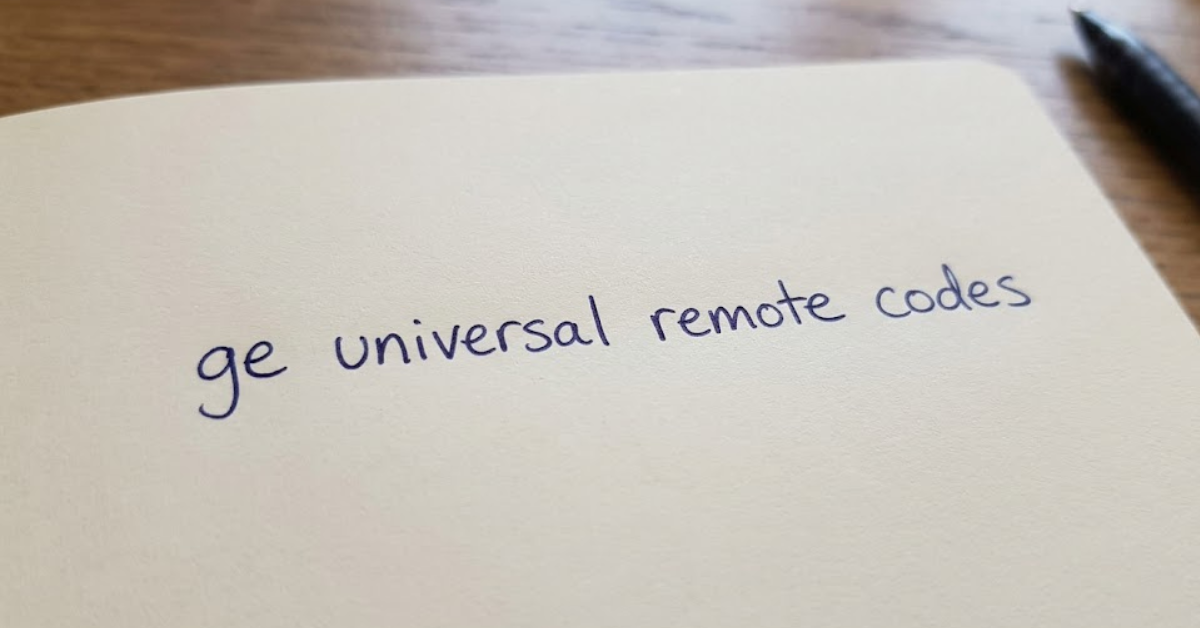 ge universal remote codes